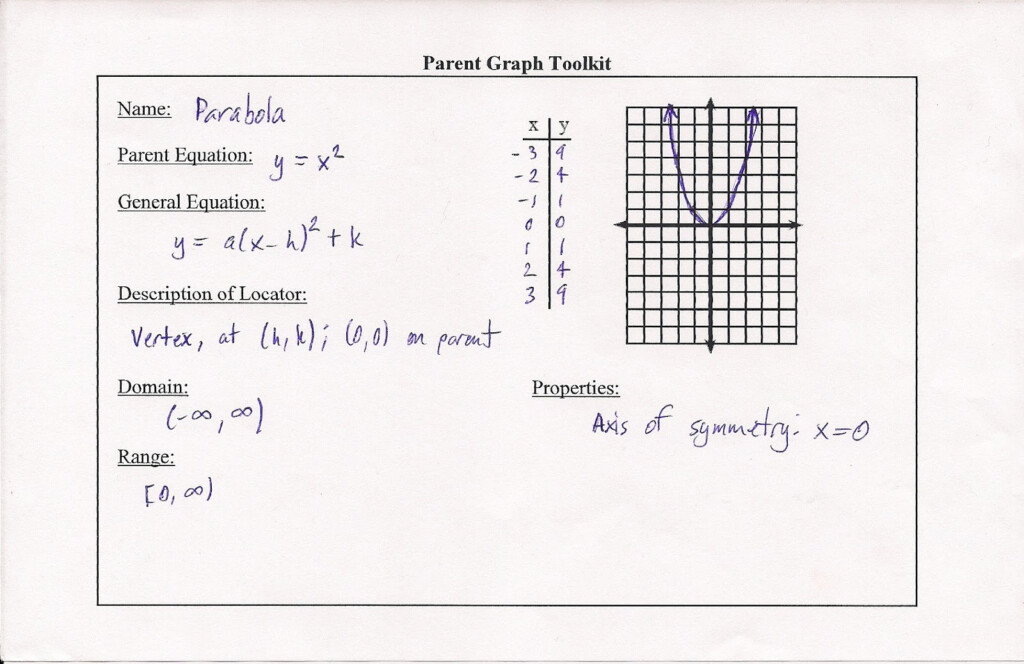 Parent Graph Toolkit
Name: Parabola
Parent Equation: y = x²
General Equation:
y = a(x-h)² + k
Description of Locator:
Vertex, at (h,k); (0,0) on parent
Domain:
(-∞, ∞)
Range:
[0, ∞)
x y
-3 9
-2 4
-1 1
0 0
1 1
2 4
3 9
Properties:
Axis of symmetry: x=0